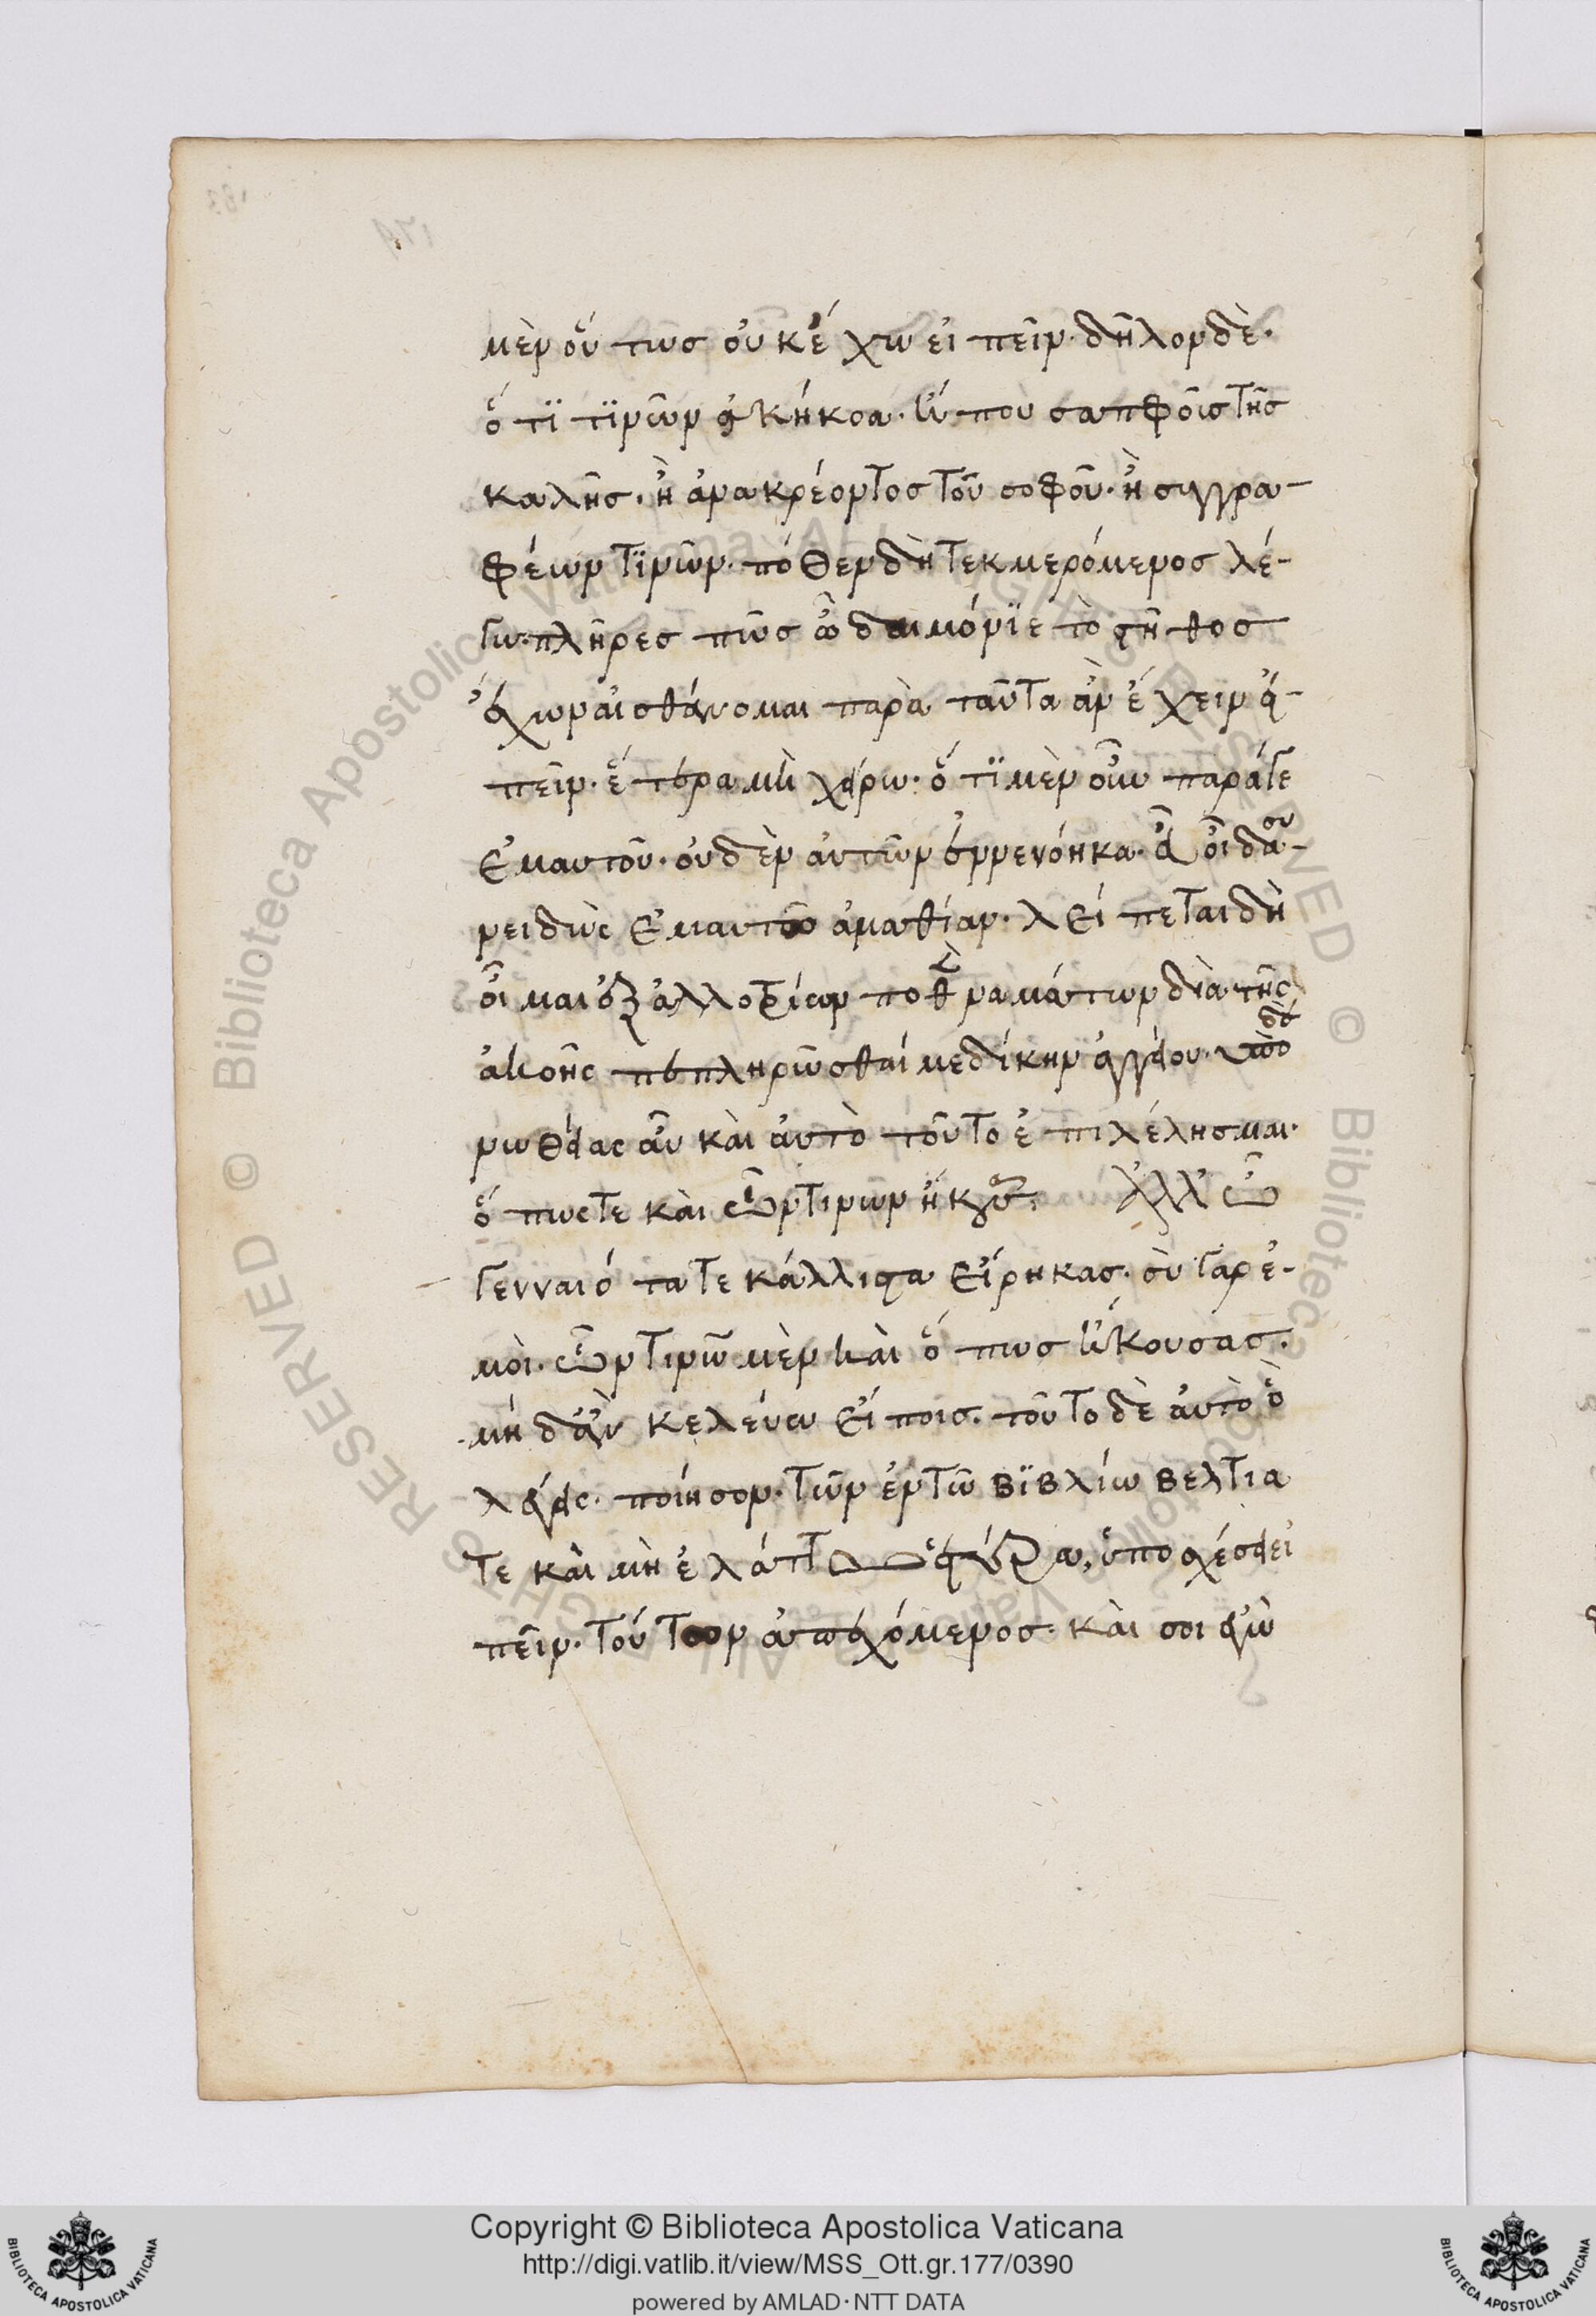 μὲν οὕτως οὐκ ἔχω εἰπεῖν· δῆλον δὲ·
ὅτι τινῶν ἀκήκοα· ἤ που σαπφοῦς τῆς
καλῆς· ἢ ἀνακρέοντος τοῦ σοφοῦ· ἢ συγγρα-
φέων τινῶν· πόθεν δὴ τεκμερόμενος λέ-
γω· πλῆρες πῶς ὦ δαιμόνιε τὸ στῆθος
ἔχων αἰσθάνομαι παρὰ ταῦτα ἂν ἔχειν εἰ-
πεῖν· ἕτερα μὴ χείρω· ὅτι μὲν οὖν παράγε
ἐμαυτοῦ· οὐδὲν αὐτῶν ἐννενόηκα· εὖ οἶδα· συ-
νειδὼς ἐμαυτῶ ἀμαθίαν· λείπεται δὴ
οἶμαι ἐξ ἀλλοτρίων ποθὲν ναμάτων διὰ τῆς
ἀκοῆς πεπληρῶσθαί με δίκην ἀγγείου· ὑπὸ δὲ
νωθείας αὖ καὶ αὐτὸ τοῦτο ἐπιλέλησμαι·
ὅπως τε καὶ ὧντινων ἤκουσα. Ἀλλ' ὦ
γενναιότατε κάλλιστα εἴρηκας· σὺ γὰρ ἐ-
μοὶ· ὧντινῶν μὲν καὶ ὅπως ἤκουσας·
μηδ' ἂν κελεύω εἴποις· τοῦτο δὲ αὐτὸ ὃ
λέγεις· ποίησον· τῶν ἐν τῶ βιβλίω βελτία
τε καὶ μὴ ἐλάττω ἕτερα, ὑποσχέσει
πεῖν· τούτων ἀπεχόμενος· καὶ σοι ἐγὼ
Copyright © Biblioteca Apostolica Vaticana
http://digi.vatlib.it/view/MSS_Ott.gr.177/0390
powered by AMLAD·NTT DATA